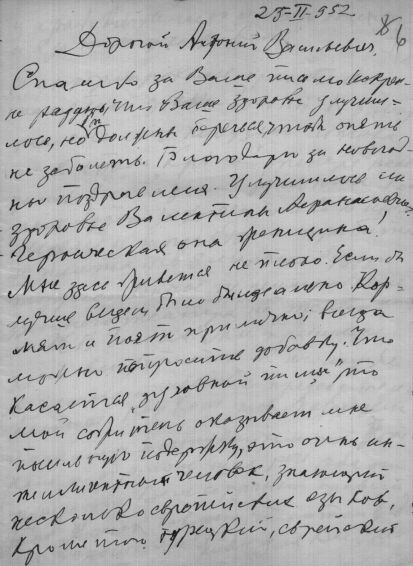 25-II-952
Дорогой Антоний Васильевич,
Спасибо за Ваше письмо. Искрен-
не рад, что Ваше здоровье улучши-
лось, но Вы должны беречься, чтоб опять
не заболеть. Благодарю за новогод-
ны поздравления. Улучшилось ли
здоровье Валентины
Героическая она женщина!
Мне здесь живется не плохо. Если бы
лучше было бы идеально. Кор-
мят и поят прилично, всегда
можно попросить добавку. Что
касается "духовной пищи", то
мой сожитель оказывает мне
посильную поддержку, это очень ин-
теллигентный человек, знающий
несколько европейских языков,
кроме того турецкий, еврейский